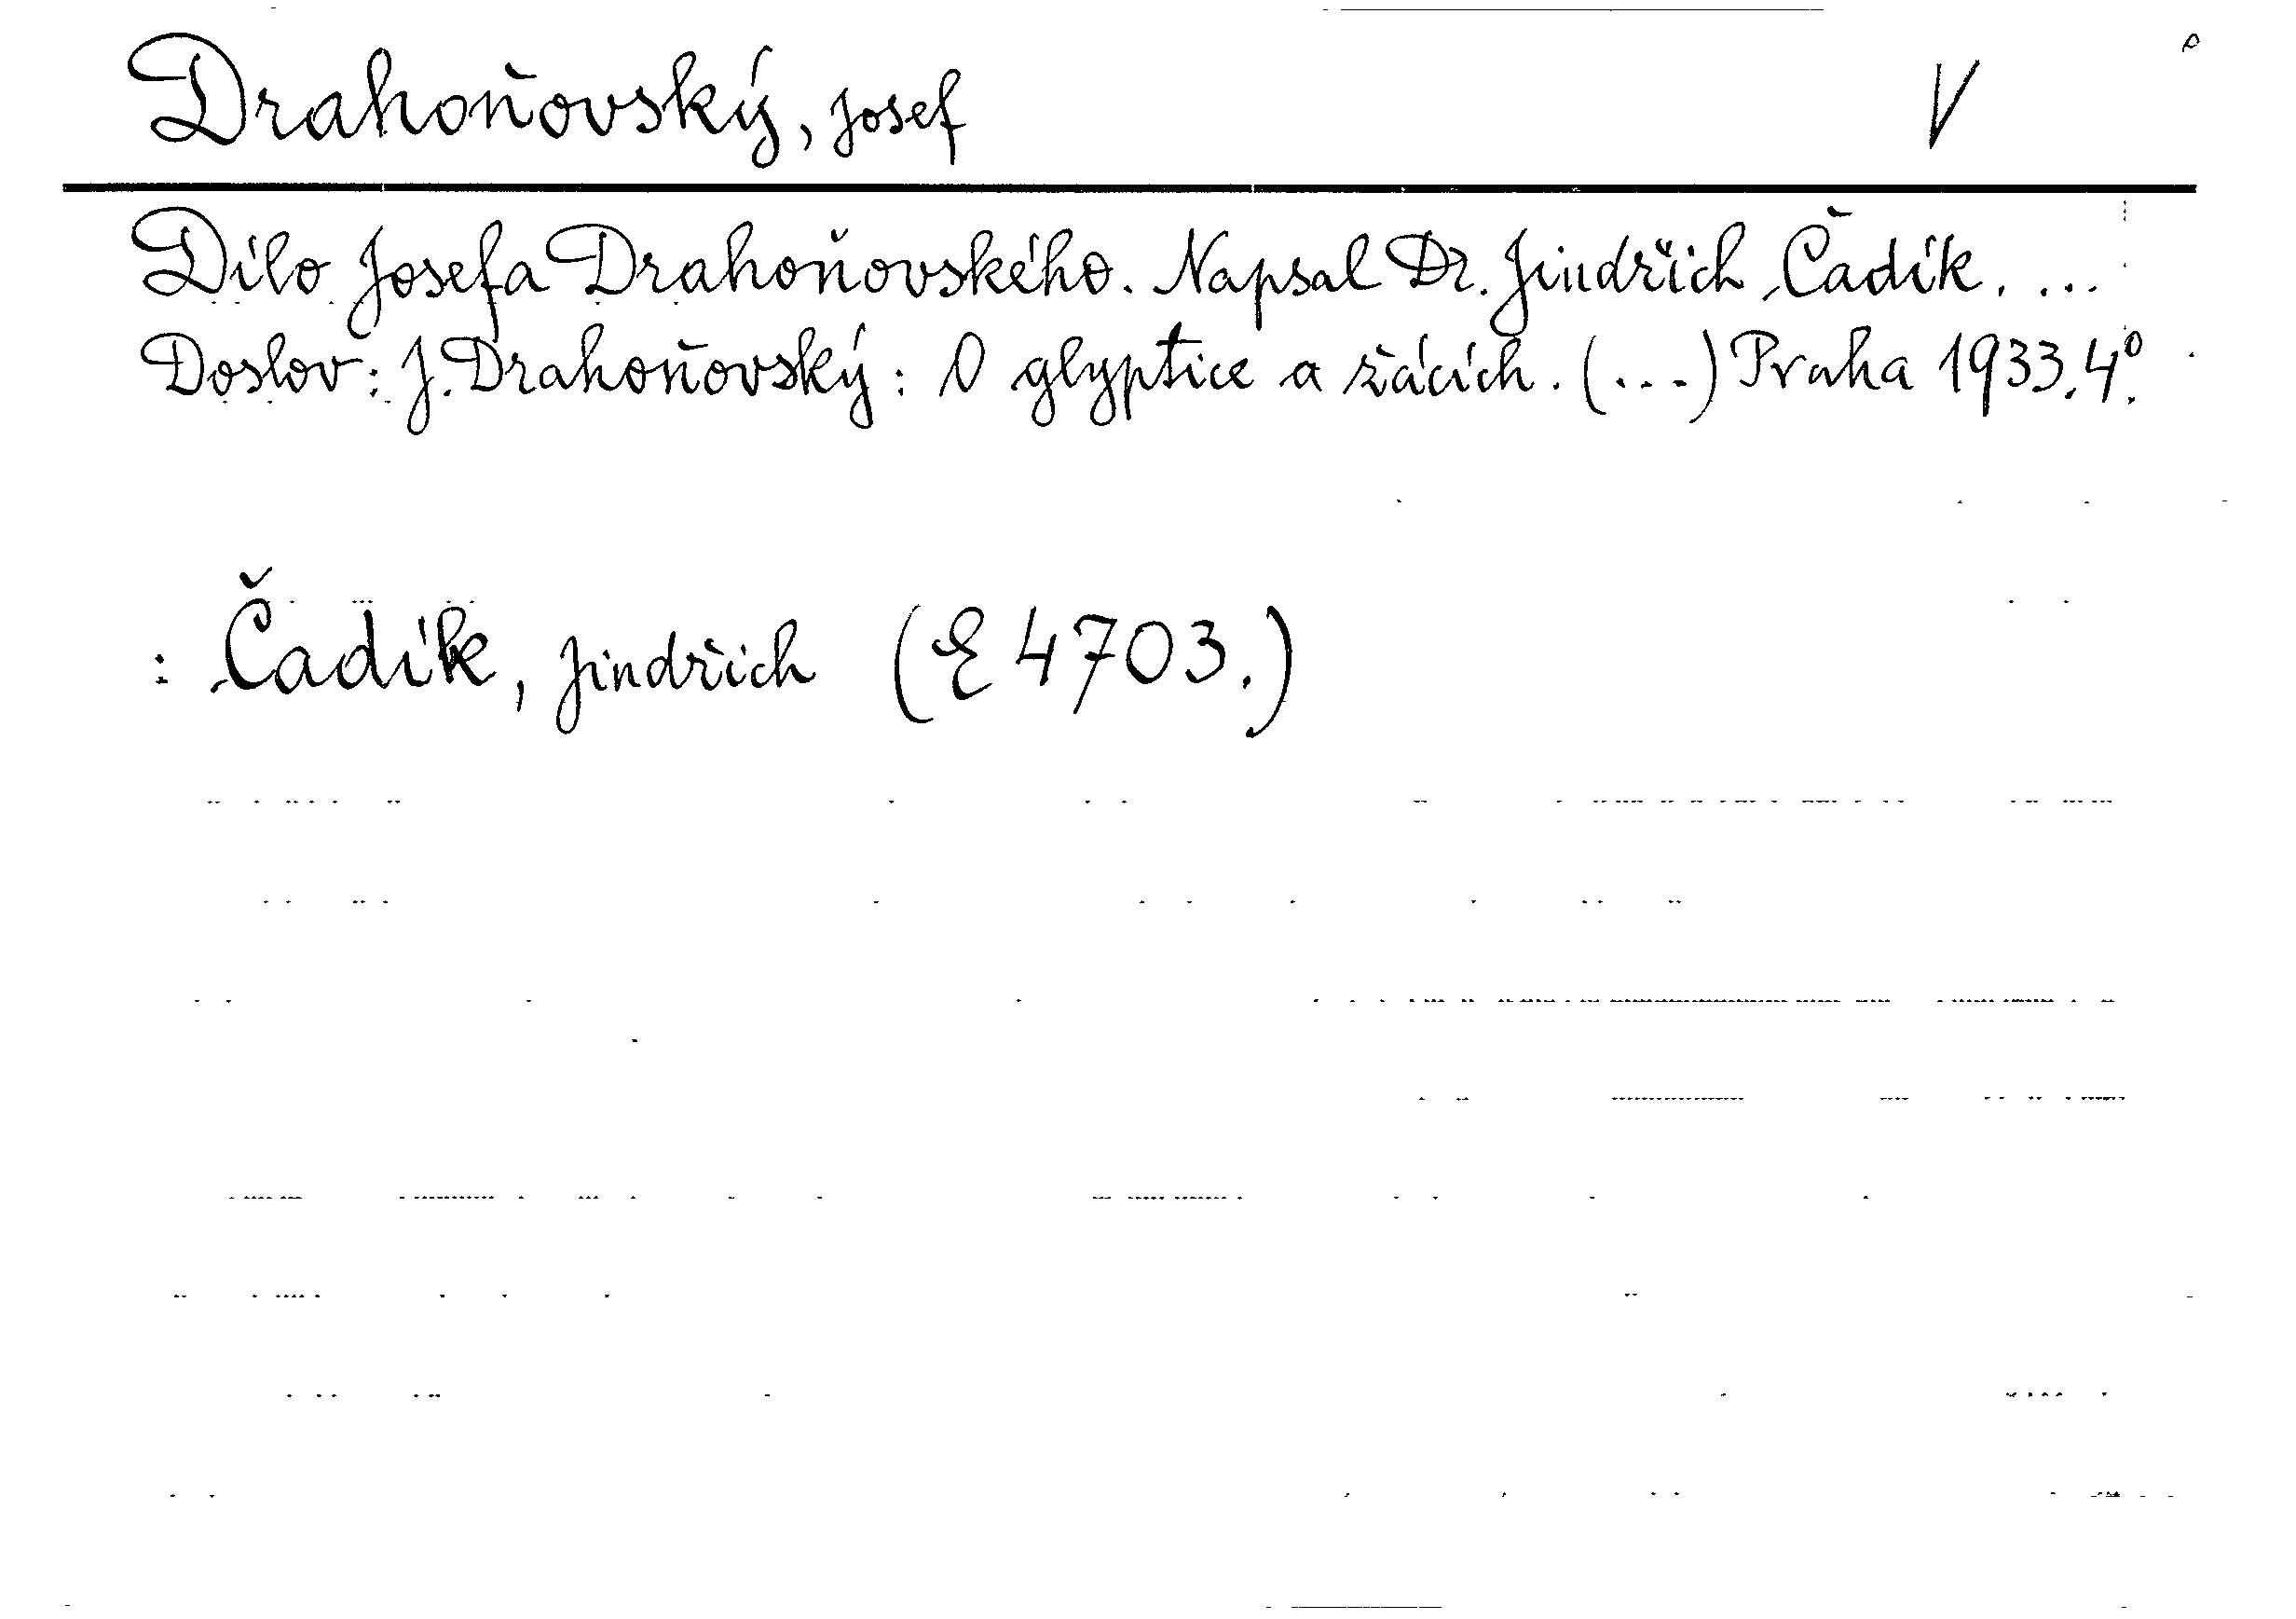 Drahoňovský, Josef V
Dílo Josefa Drahoňovského. Napsal Dr. Jindřich Čadík. ...
Doslov: J. Drahoňovský: O glyptice a žácích. (...) Praha 1933. 4°.
: Čadík, Jindřich (E 4703.)